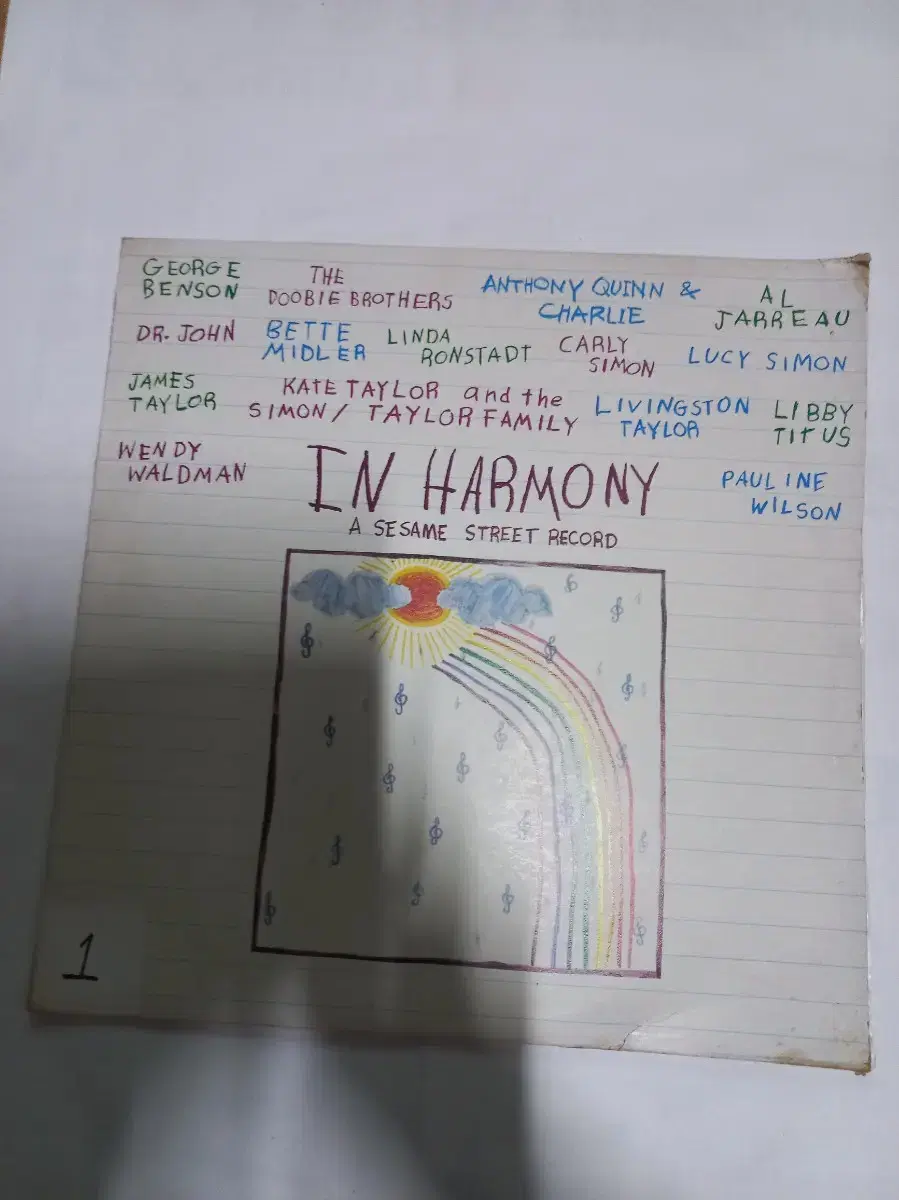 GEORGE BENSON
THE DOOBIE BROTHERS
ANTHONY QUINN & CHARLIE
AL JARREAU
DR. JOHN
BETTE MIDLER
LINDA RONSTADT
CARLY SIMON
LUCY SIMON
JAMES TAYLOR
KATE TAYLOR and the
SIMON / TAYLOR FAMILY
LIVINGSTON TAYLOR
LIBBY TITUS
WENDY WALDMAN
IN HARMONY
A SESAME STREET RECORD
PAULINE WILSON
1